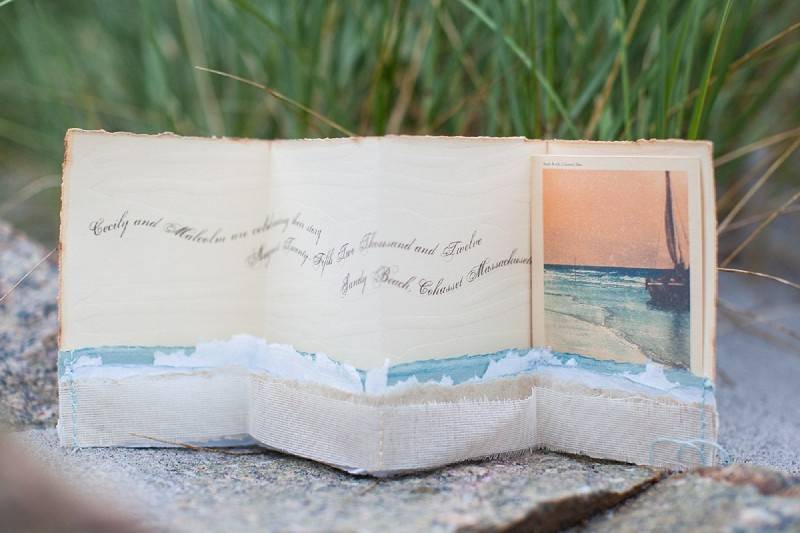 Cecily and Malcolm are celebrating their story
August Twenty-Fifth Two Thousand and Twelve
Sandy Beach, Cohasset Massachusetts